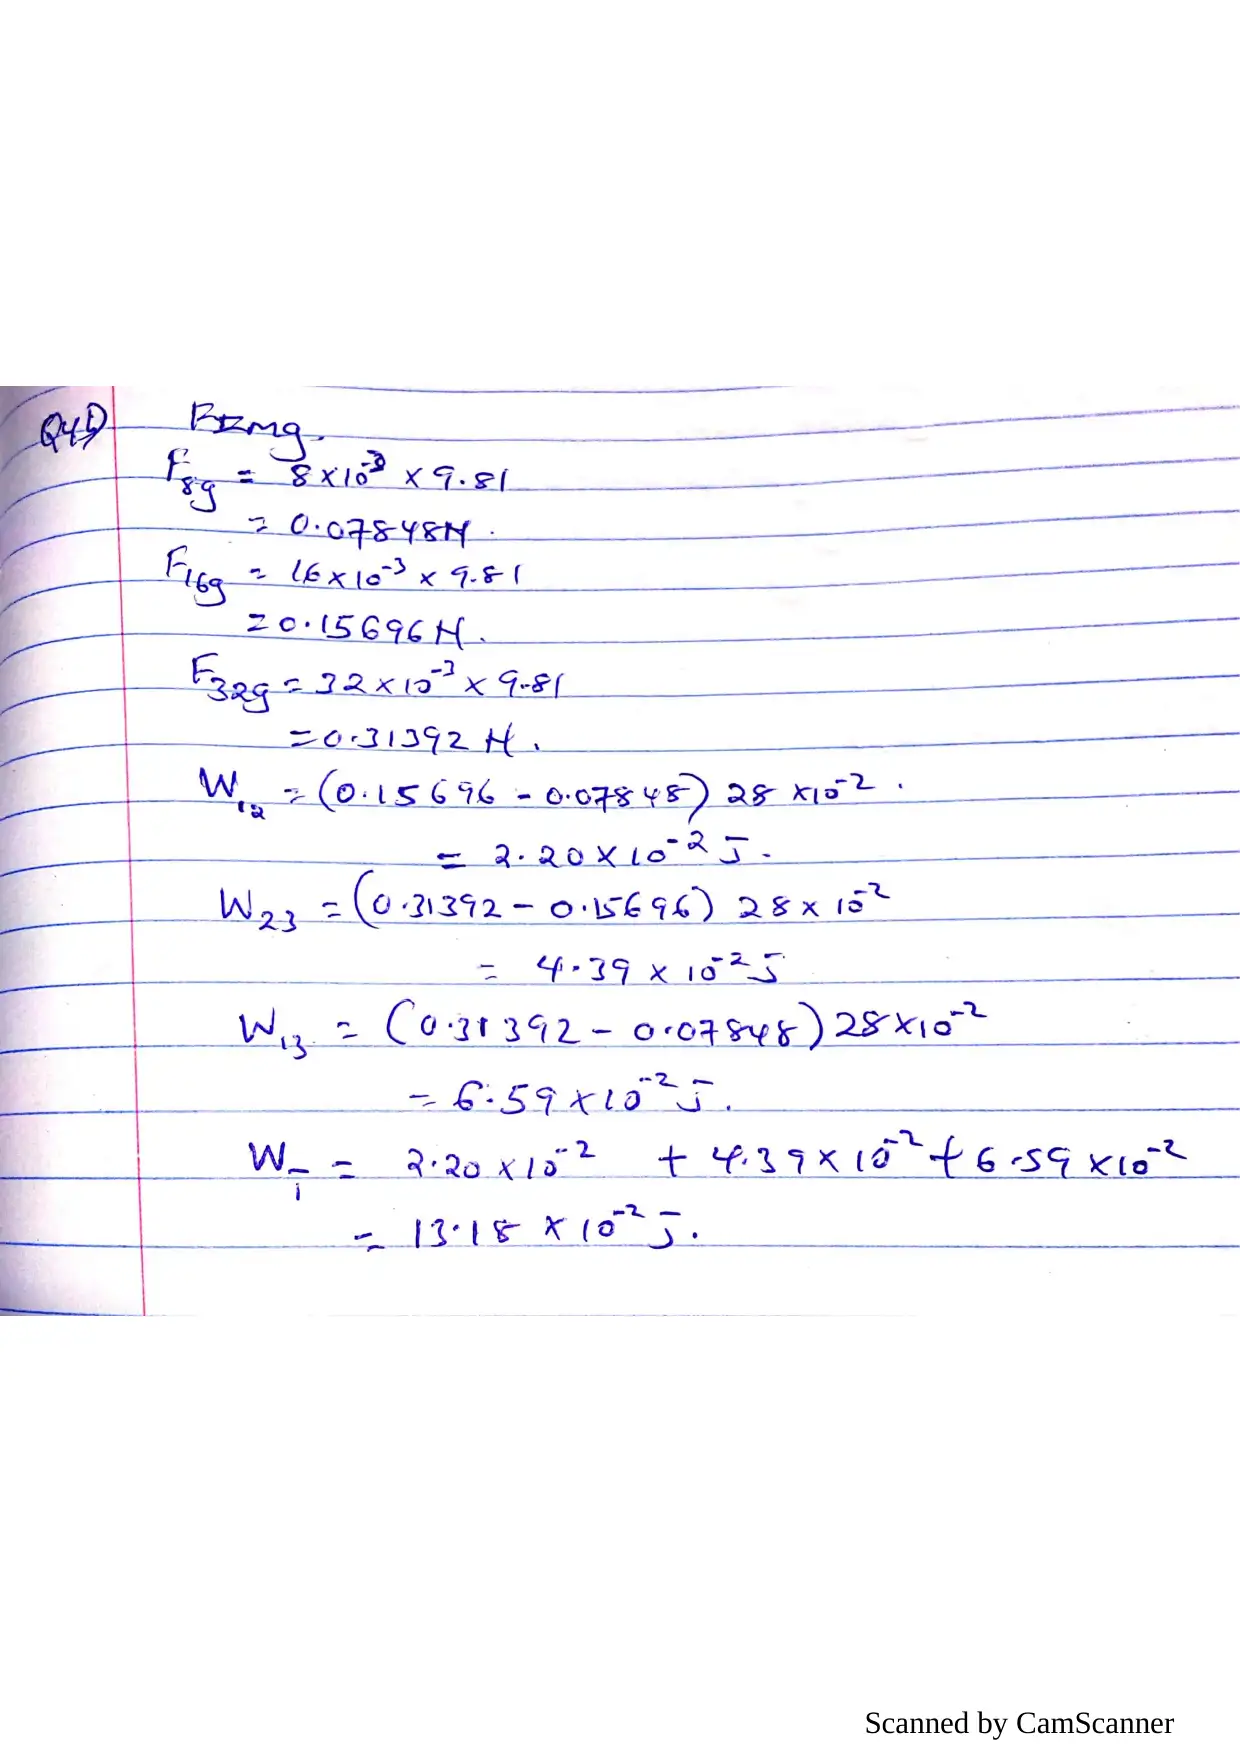 Q4b) F=mg.
F8g = 8×10^-3 × 9.81
= 0.07848N.
F16g = 16×10^-3 × 9.81
= 0.15696N.
F32g = 32×10^-3 × 9.81
= 0.31392 N.
W12 = (0.15696 - 0.07848) 28 ×10^-2.
= 2.20×10^-2 J.
W23 = (0.31392 - 0.15696) 28×10^-2
= 4.39 × 10^-2 J
W13 = (0.31392 - 0.07848) 28×10^-2
= 6.59×10^-2 J.
WT = 2.20×10^-2 + 4.39×10^-2 + 6.59×10^-2
= 13.18 × 10^-2 J.
Scanned by CamScanner